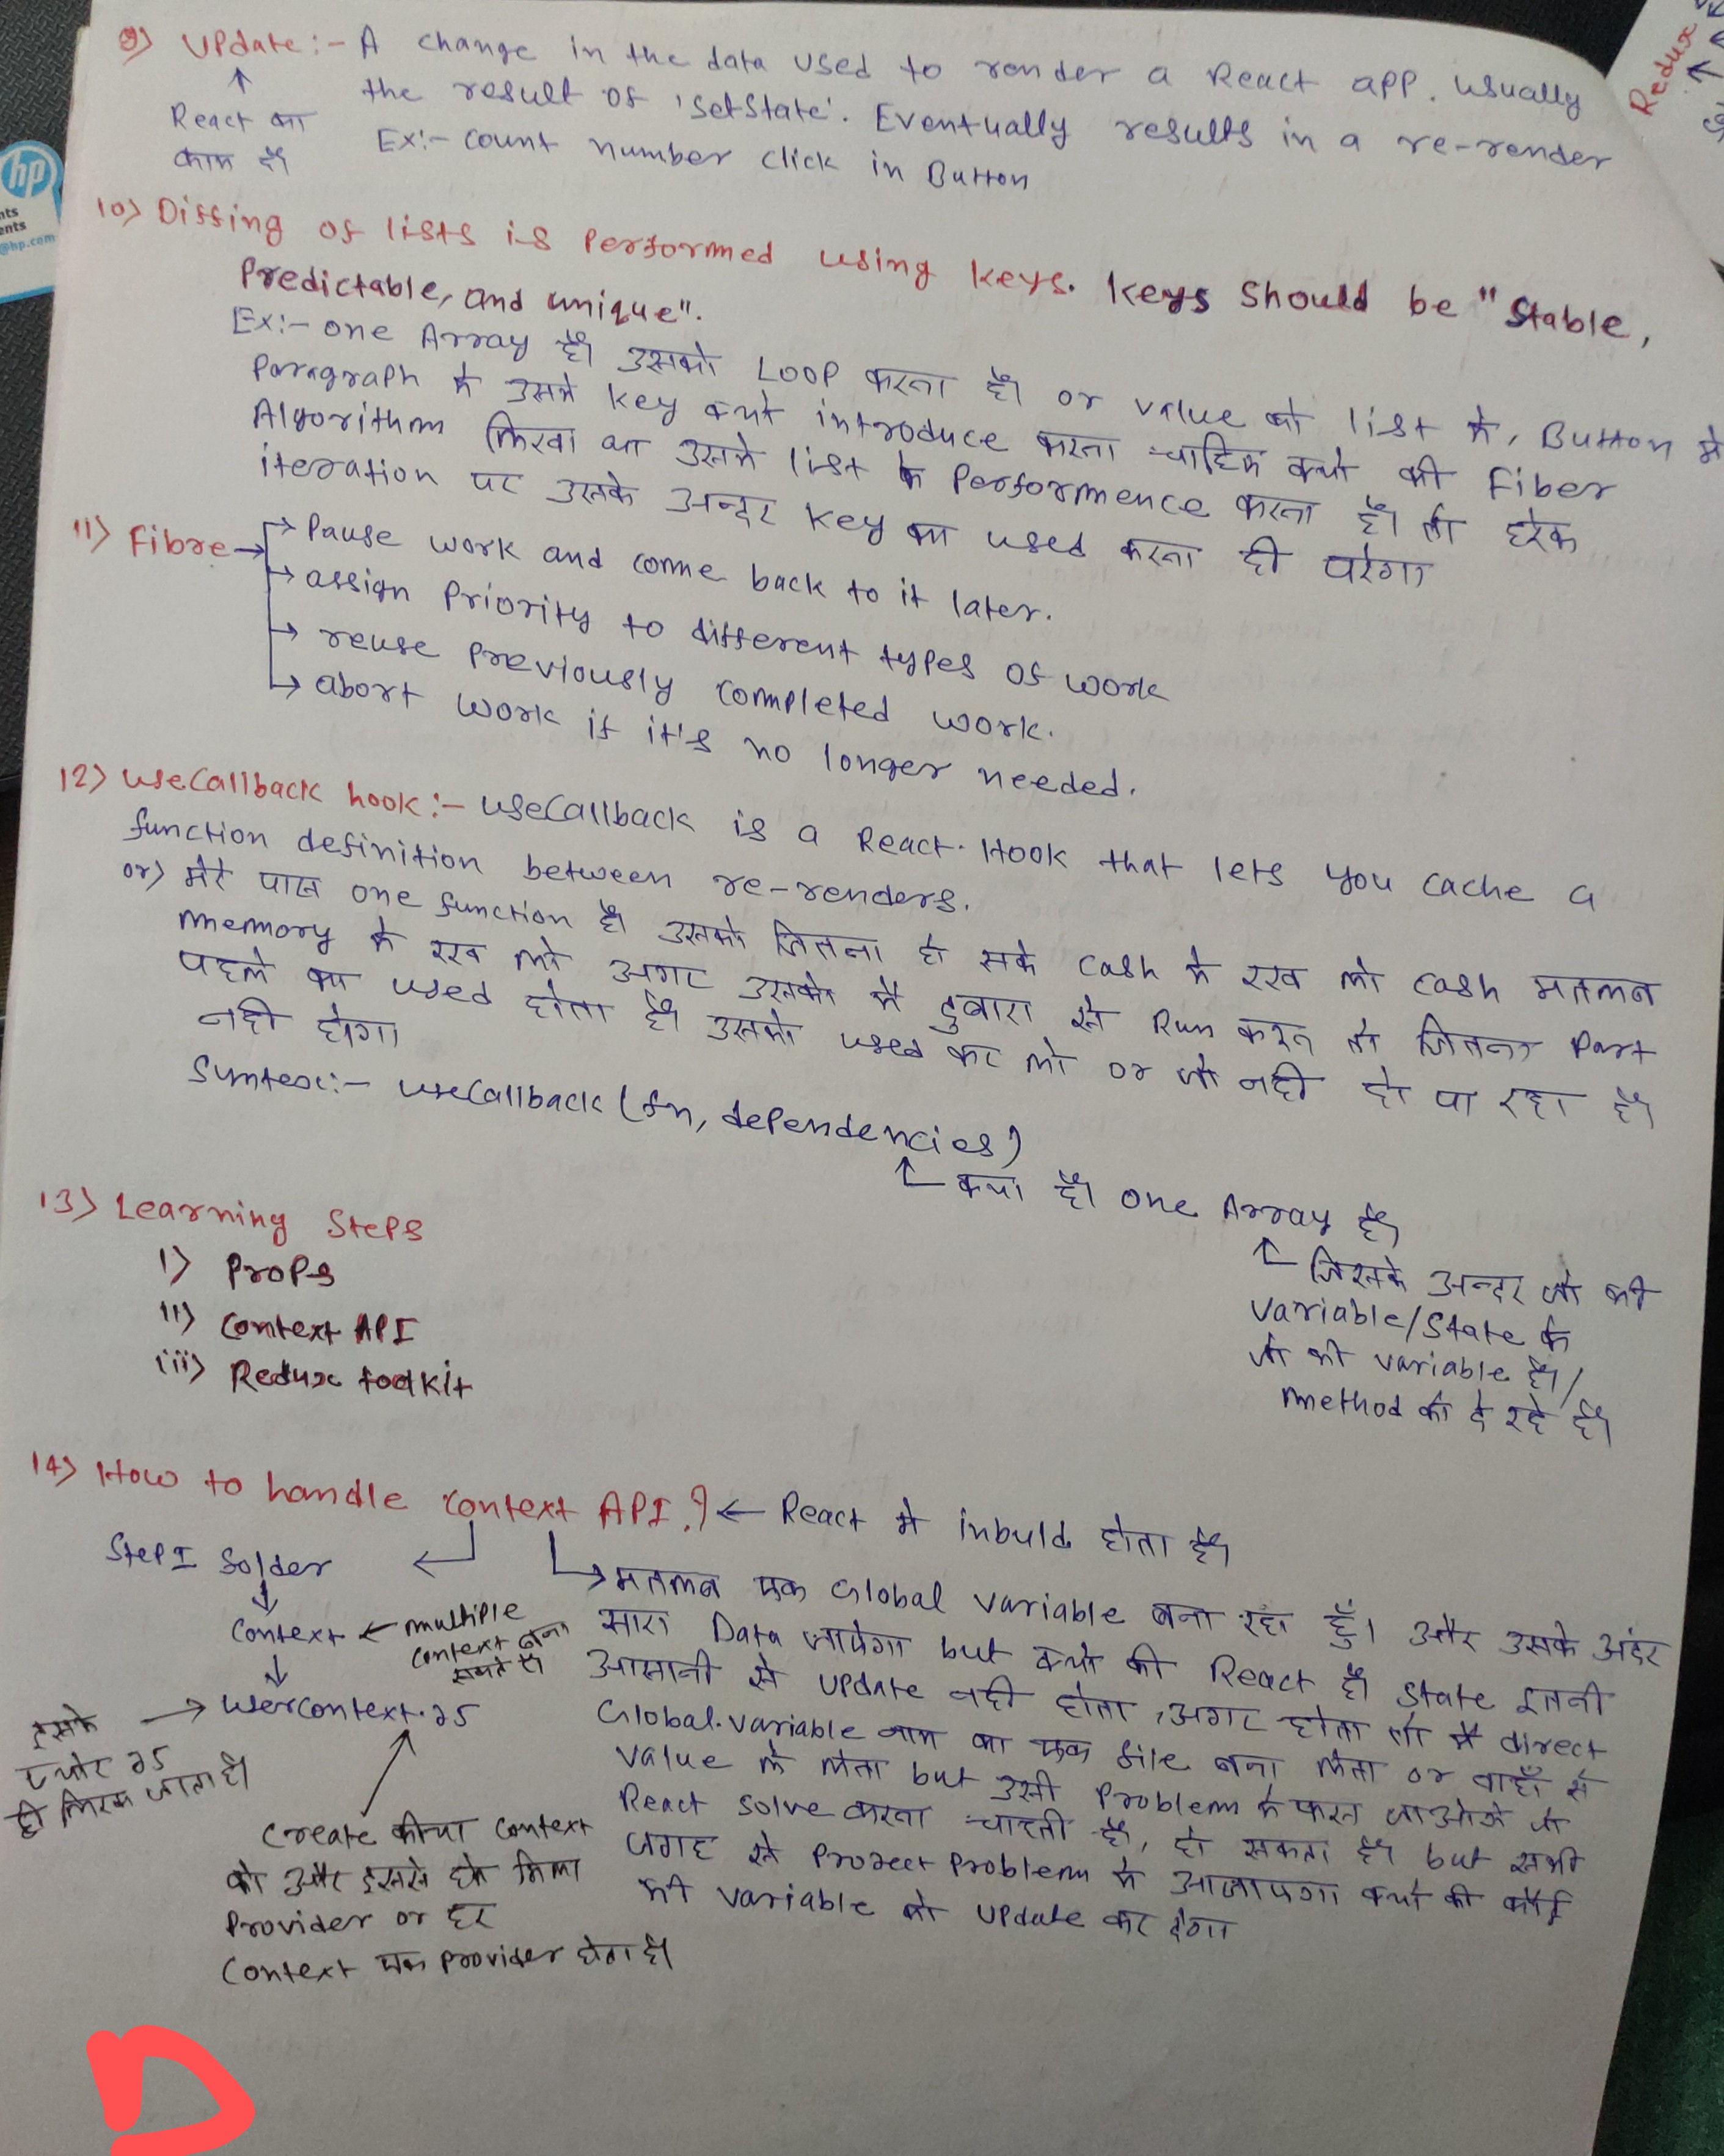 9) Update:- A change in the data used to render a React app. Usually
the result of 'setState'. Eventually results in a re-render
Ex:- count number click in Button
React का
काम है।
10) Diffing of lists is performed using keys. Keys should be "Stable,
Predictable, and unique".
Ex:- one Array है। उसको Loop करना है। or value को list में, Button में
Paragraph में उसमें key क्यों introduce करना चाहिए क्यों की Fiber
Algorithm लिखा था उसमें list के Performence करना है। तो हरेक
iteration पर उसके अन्दर key का used करना ही परेगा
11) Fibre →
→ Pause work and come back to it later.
→ assign Priority to different types of work
→ reuse previously completed work.
→ abort work if it's no longer needed.
12) useCallback hook:- useCallback is a React Hook that lets you cache a
function definition between re-renders.
or) मेरे पास one function है। उसको जितना हो सके cash में रख लो cash मतलब
memory में रख लो अगर उसको मैं दुबारा से Run करू तो जितना Part
पहले का used होता है। उसको used कर लो or जो नही हो पा रहा है।
नही होगा
Syntex:- useCallback (fn, dependencies)
क्या है। one Array है।
जिसके अन्दर जो की
variable/State के
जो की variable है।/
method को दे रहे है।
13) Learning Steps
i) Props
ii) Context API
iii) Redux toolkit
14) How to handle context API? ← React में inbuld होता है।
Step I Solder
Context ← multiple
context बना
सकते है।
→ मतलब एक Global variable बना रहा हूँ। और उसके अंदर
सारा Data जायेगा but क्यों की React है। State इतनी
आसानी से update नही होता, अगर होता तो मैं direct
Global.variable नाम का एक file बना लेता or वाहाँ से
value ले लेता but उसी Problem में फस जाओगे जो
React solve करना चाहती है, हो सकता है। but सभी
जगह से Project Problem में आजाएगा क्यों की कोई
भी variable को update कर देगा
इसके → UserContext.js
js
ही लिखा जाता है।
Create कीया Context
को और इससे हमे मिला
Provider or हर
Context एक provider होता है।
Redux
hp
nts
ents
@hp.com
D